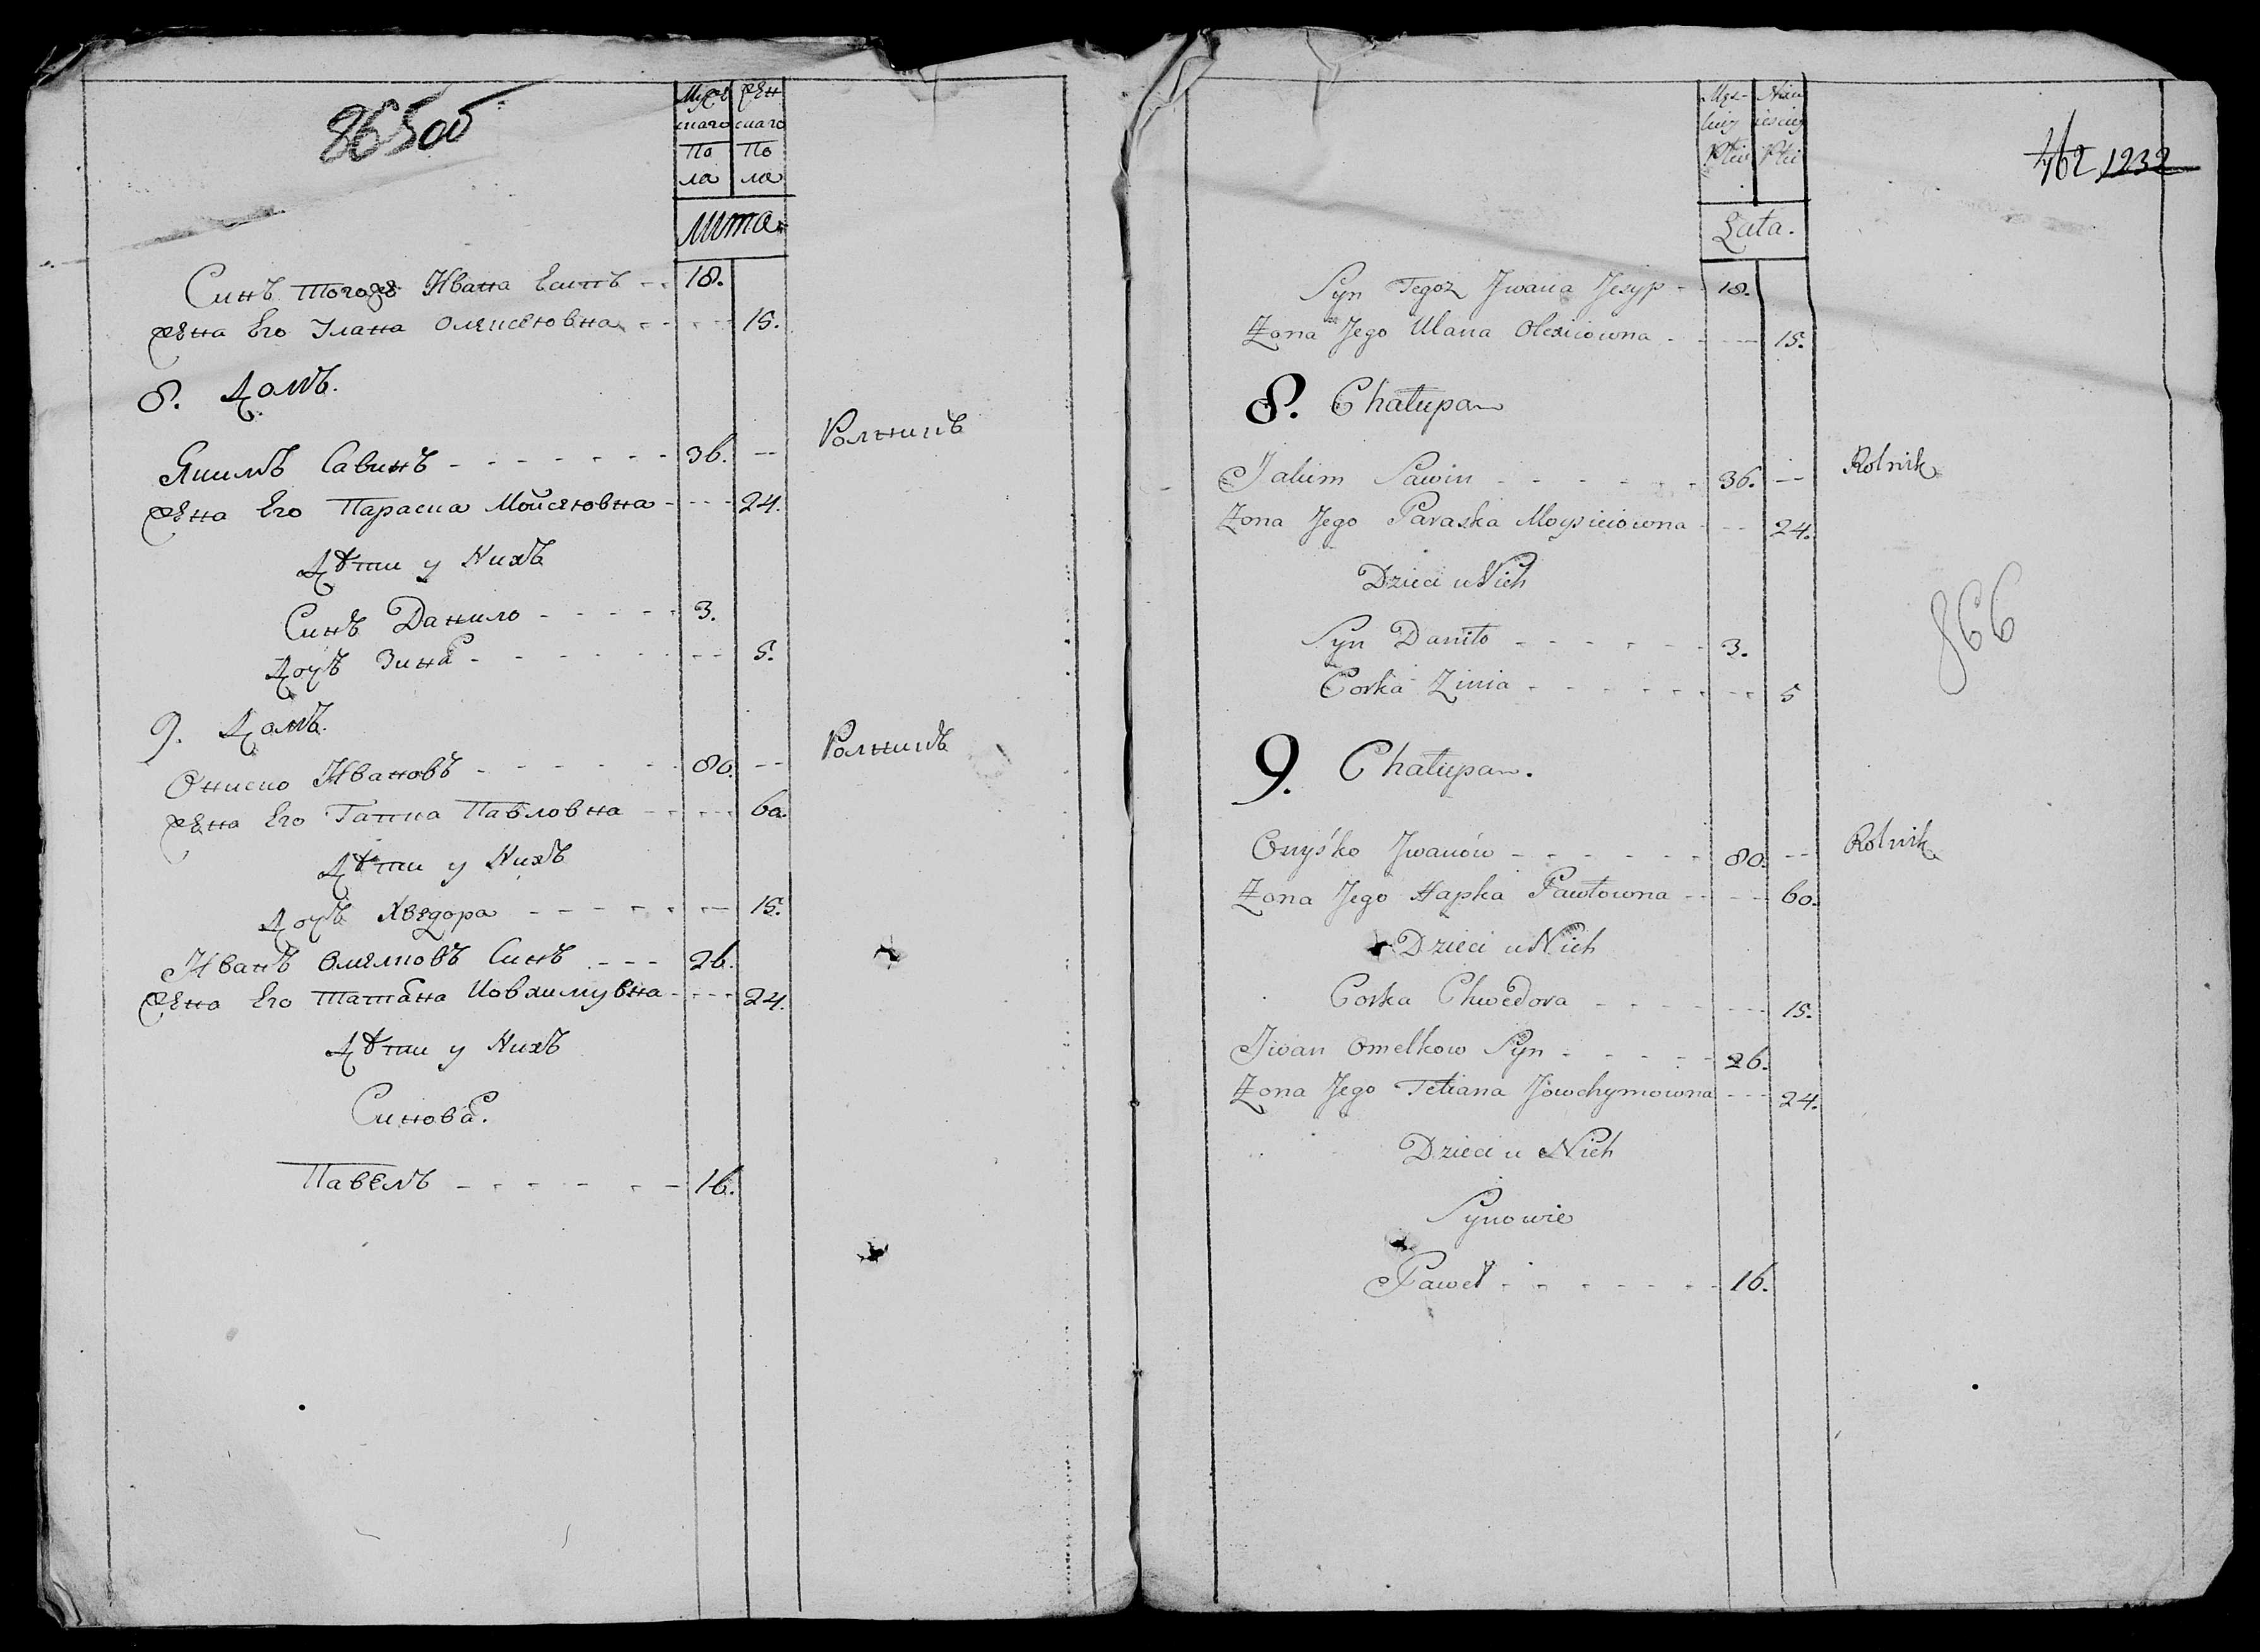 865об
Муже
скаго
По
ла
Жен
скаго
По
ла
Лита.
Синъ тогожъ Ивана Есипъ - - 18.
Жена Его Улана Олексеювна - - - - 15.
8. Домъ.
Якимъ Савинъ - - - - - - - 36. -- Ролникъ
Жена Его Параска Мойсеювна - - - - 24.
Дѣти у Нихъ
Синъ Данило - - - - - 3.
Дочъ Зинα - - - - - - - - 5.
9. Домъ.
Ониско Ивановъ - - - - - - 80. -- Ролникъ
Жена Его Гапка Павловна - - - - 60.
Дѣти у Нихъ
Дочъ Хведора - - - - - - - 15.
Иванъ Омелковъ Синъ - - - 26.
Жена Его Татяна Иовхимувна - - - - 24.
Дѣти у Нихъ
Синовя.
Павелъ - - - - - - - 16.
Męz-
kiey
Płci
Płci
Łata.
462 1232
Syn Tegoz Jwana Jesyp - - 18.
Zona Jego Ulana Olexiiowna - - - - 15.
8. Chałupa
Jakim Sawin - - - - - - 36. -- Rolnik
Zona Jego Paraska Moysieiowna - - - 24.
Dzieci u Nich
866
Syn Daniło - - - - - - 3.
Corka Zinia - - - - - - - - 5
9. Chałupa.
Onyśko Jwanów - - - - - - 80. -- Rolnik
Zona Jego Hapka Pawłowna - - - - 60.
Dzieci u Nich
Corka Chwedora - - - - - - 15.
Jwan Omelkow Syn - - - - - 26.
Zona Jego Tetiana Jowchymowna - - - 24.
Dzieci u Nich
Synowie
Paweł - - - - - - - 16.